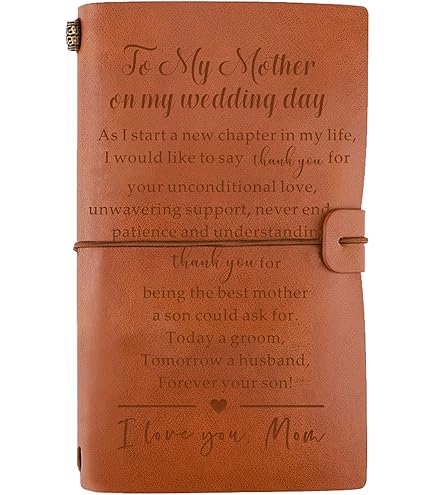 To My Mother
on my wedding day
As I start a new chapter in my life,
I would like to say thank you for
your unconditional love,
unwavering support, never end
patience and understandin
thank you for
being the best mother
a son could ask for.
Today a groom,
Tomorrow a husband,
Forever your son!
I love you, Mom